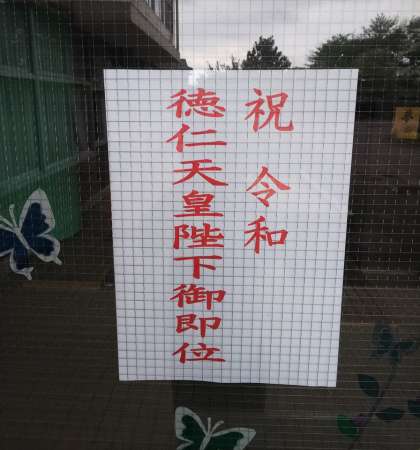 祝 令和
徳仁天皇陛下御即位